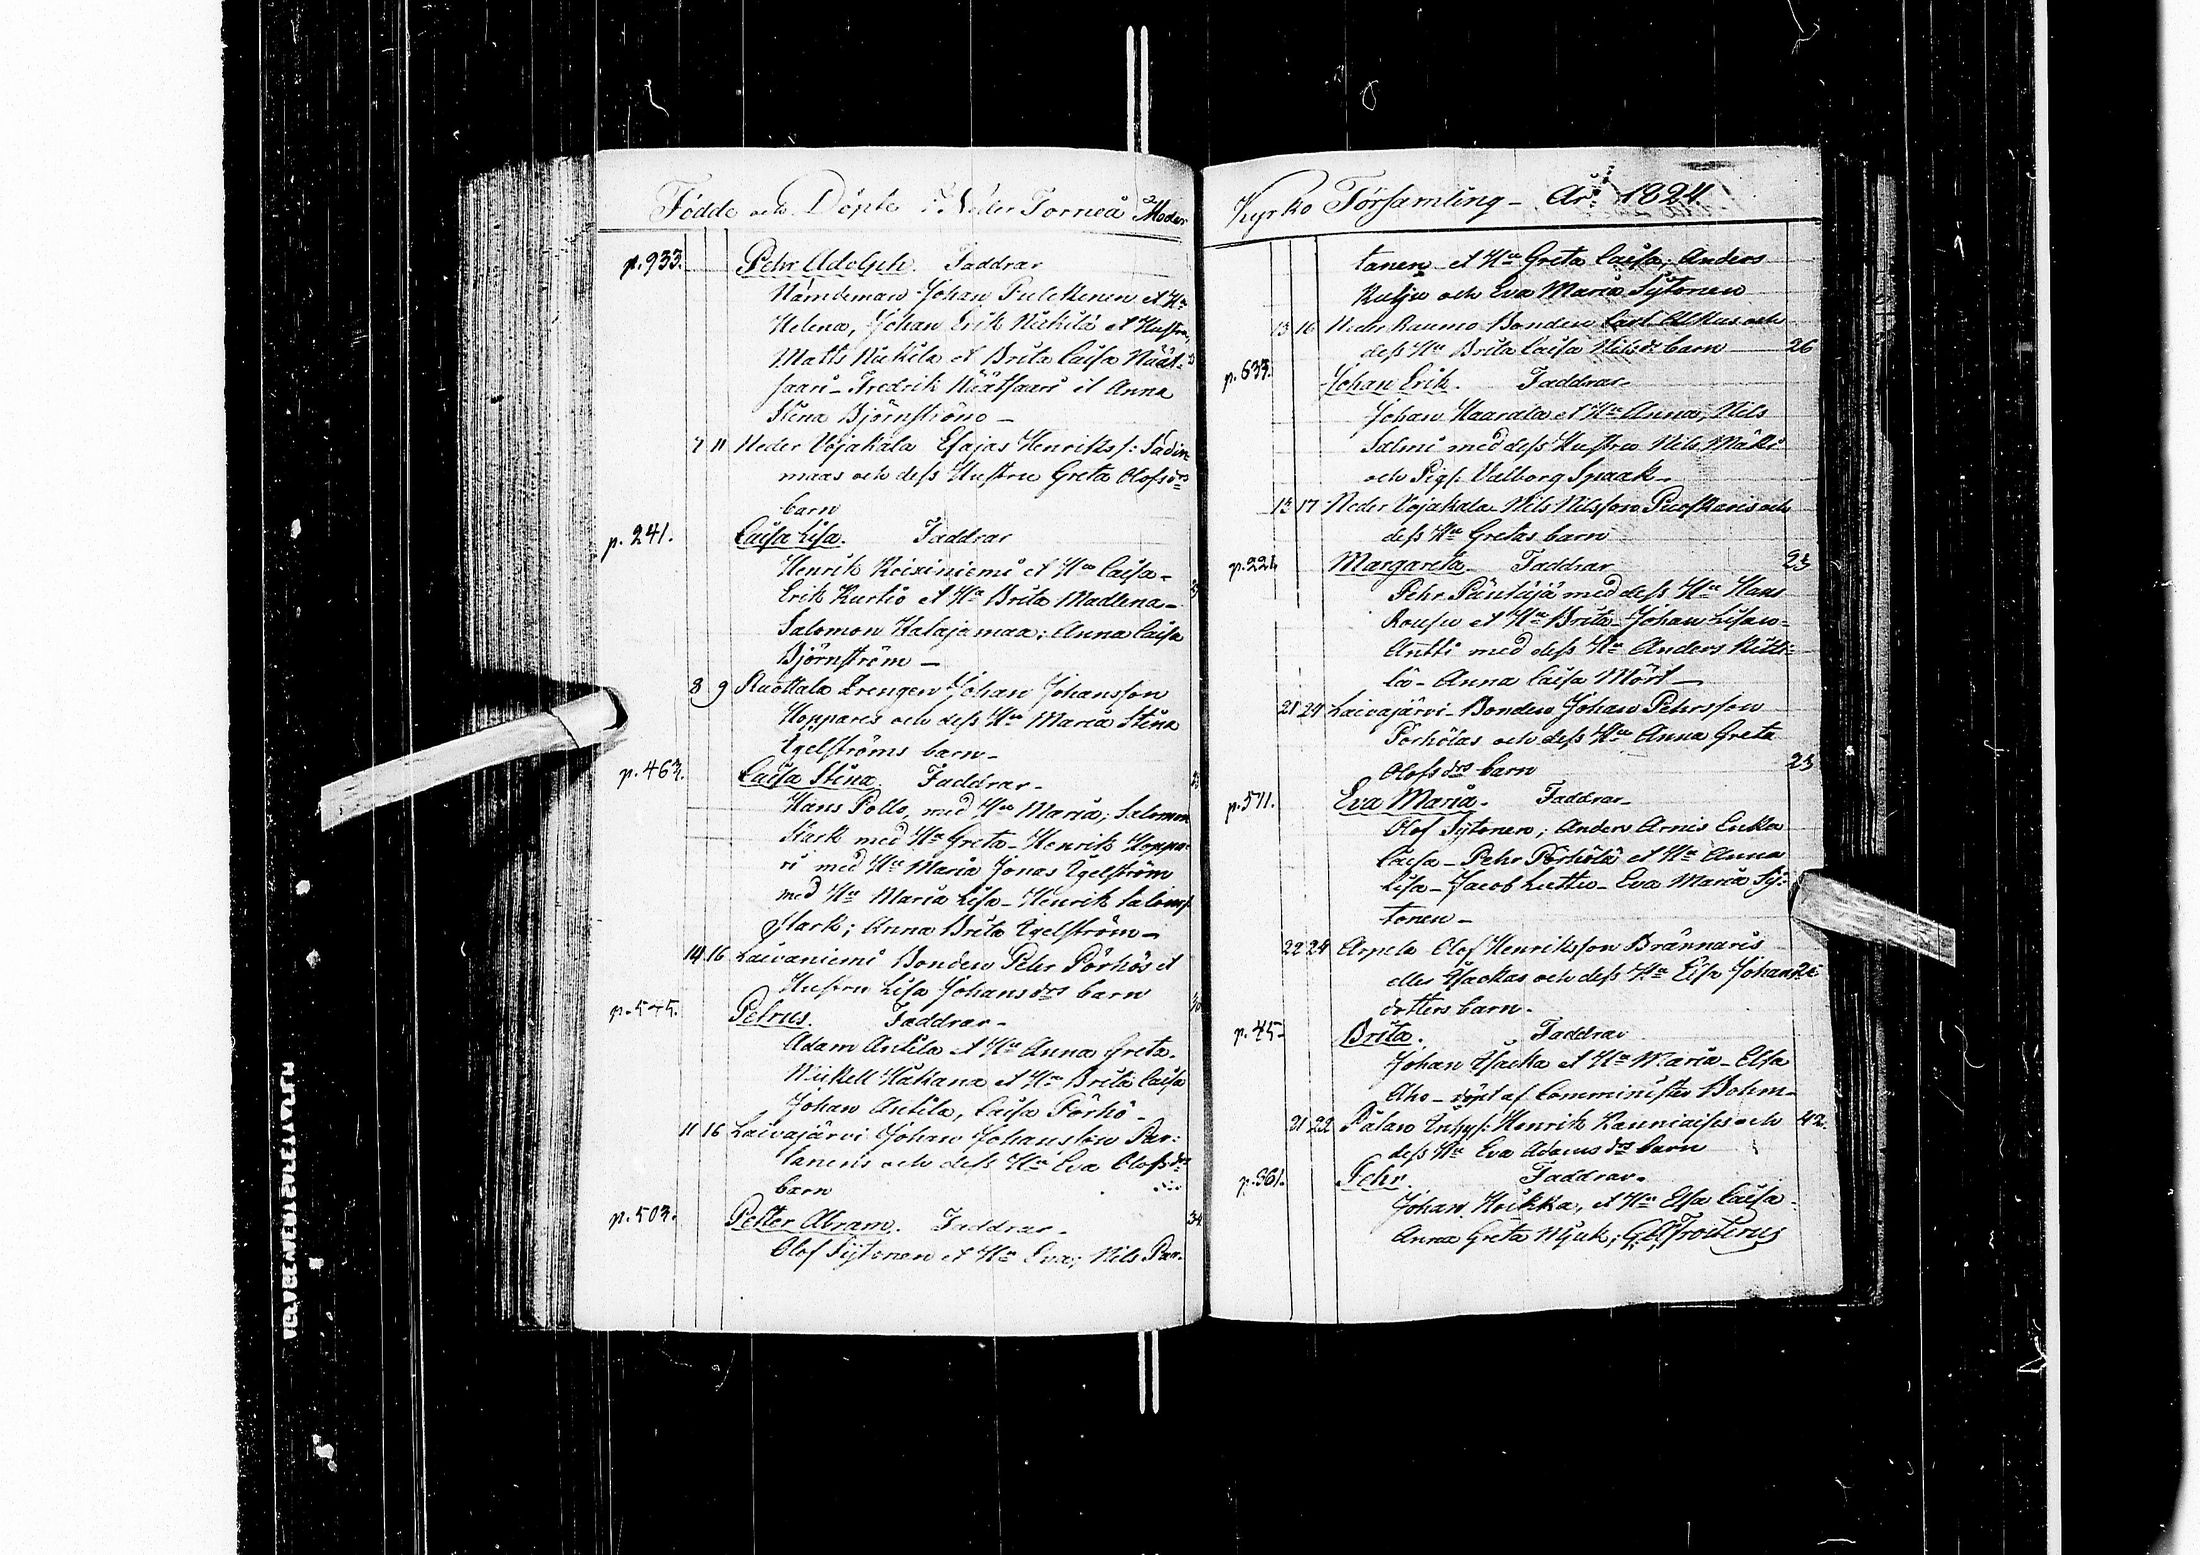 Födde och Döpte i Neder Torneå Moder
p. 933. Pehr Adolph. Faddrar
Nämdeman Johan Pulckenen et H:u
Helena, Johan Erik Niekilä et Hustru,
Matts Niekila et Brita Caisa Näät-
saari - Fredrik Näätsaari et Anna
Stina Björnström -
7 11 Neder Vojakala Esajas Henriks s:
maas och dess Hustru Greta Olofsdrs
barn
p. 241. Caisa Lisa. Faddrar
Henrik Koiviniemi et H:u Caisa -
Erik Kurtio et H:u Brita Madlena -
Salomon Katajamaa; Anna Caisa
Björnström -
8 9 Ruottala Drengen Johan Johansson
Hoppares och dess H:u Maria Stina
Egelströms barn -
p. 463. Caisa Stina. Faddrar -
Hans Pello, med H:u Maria; Salomon
Stark med H:u Greta - Henrik Hoppa-
ri med H:u Maria Jonas Egelström
med H:u Maria Lisa - Henrik Saloms
Stark; Anna Brita Egelström -
14 16 Laivaniemi Bonden Pehr Pörhös et
Hustru Lisa Johansdrs barn
p. 545. Petrus. Faddrar -
Adam Antila et H:u Anna Greta -
Mickell Håkana et H:u Brita Caisa
Johan Antila, Caisa Pörhö -
11 16 Laivajärvi Johan Johansson Par-
tanens och dess H:u Eva Olofsdrs
barn
p. 503. Petter Abram. Faddrar - 34
Olof Sytonen et H:u Eva; Nils Par-
Kyrko Församling - År 1824.
tanen et H:u Greta Caisa; Anders
Kulju och Eva Maria Sytonen
13 16 Neder Raumo Bonden Carl Alkus och
dess H:u Brita Caisa Nilsdr barn 26
p. 633. Johan Erik. Faddrar -
Johan Haarala et H:u Anna, Nils
Salmi med dess Hustru Nils Mäki
och Pig: Valborg Spaak -
13 17 Neder Vojakala Nils Nilsson Puoskaris och
dess H:u Gretas barn
p. 221. Margareta Faddrar 23
Pehr Päntäjä med dess H:u Hans
Rousu et H:u Brita - Johan Lisan-
Antti med dess H:u Anders Kitti-
lä - Anna Caisa Mört -
21 24 Laivajärvi - Bonden Johan Pehrsson
Pörhölas och dess H:u Anna Greta
Olofsdrs barn 23
p. 571. Eva Maria. Faddrar -
Olof Sytonen; Anders Arnis Enka
Caisa - Pehr Pörhölä et H:u Anna
Lisa - Jacob Luttu - Eva Maria Sy-
tonen -
22 24 Arpela Olof Henriksson Brännaris
eller Yjackas och dess H:u Elsa Johans
dotters barn -
p. 45. Brita. Faddrar
Johan Yjacka et H:u Maria - Elsa
Aho - döpt af Comminister Bohm -
21 22 Kålan Inhys: Henrik och 42.
dess H:u Eva Adamsdrs barn
p. 561. Pehr. Faddrar.
Johan Hoikka, et H:u Elsa Caisa -
Anna Greta Mjuk; Frosterus